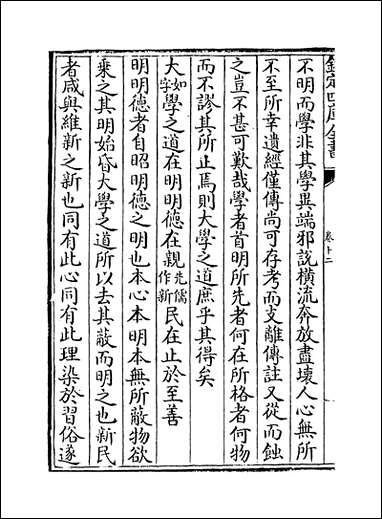 欽定四庫全書
卷十二
不明而學非其學異端邪說橫流奔放盡壞人心無所
不至所幸遺經僅傳尚可存考而支離傳註又從而蝕
之豈不甚可歎哉學者首明所先者何在所格者何物
而不謬其所止焉則大學之道庶乎其得矣
大如字學之道在明明德在親先儒作新民在止於至善
明明德者自昭明德之明也本心本明本無所蔽物欲
乘之其明始昏大學之道所以去其蔽而明之也新民
者咸與維新之新也同有此心同有此理染於習俗遂